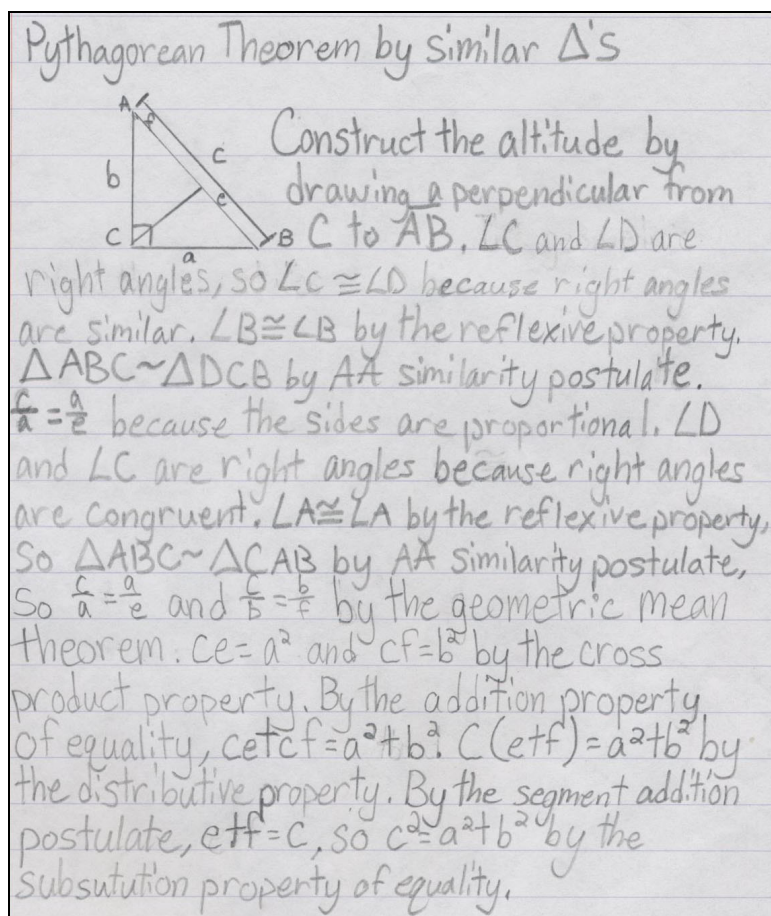 Pythagorean Theorem by Similar Δ's
A
f
c
b
e
C
B
a
Construct the altitude by
drawing a perpendicular from
C to A̅B̅. ∠C and ∠D are
right angles, so ∠C≅∠D because right angles
are similar. ∠B≅∠B by the reflexive property.
ΔABC~ΔDCB by AA similarity postulate.
c/a = a/e because the sides are proportional. ∠D
and ∠C are right angles because right angles
are congruent. ∠A≅∠A by the reflexive property,
So ΔABC~ΔCAB by AA similarity postulate,
So c/a = a/e and c/b = b/f by the geometric mean
theorem. ce=a² and cf=b² by the cross
product property. By the addition property
of equality, ce+cf=a²+b². C(e+f)=a²+b² by
the distributive property. By the segment addition
postulate, e+f=C, so c²=a²+b² by the
subsutution property of equality.